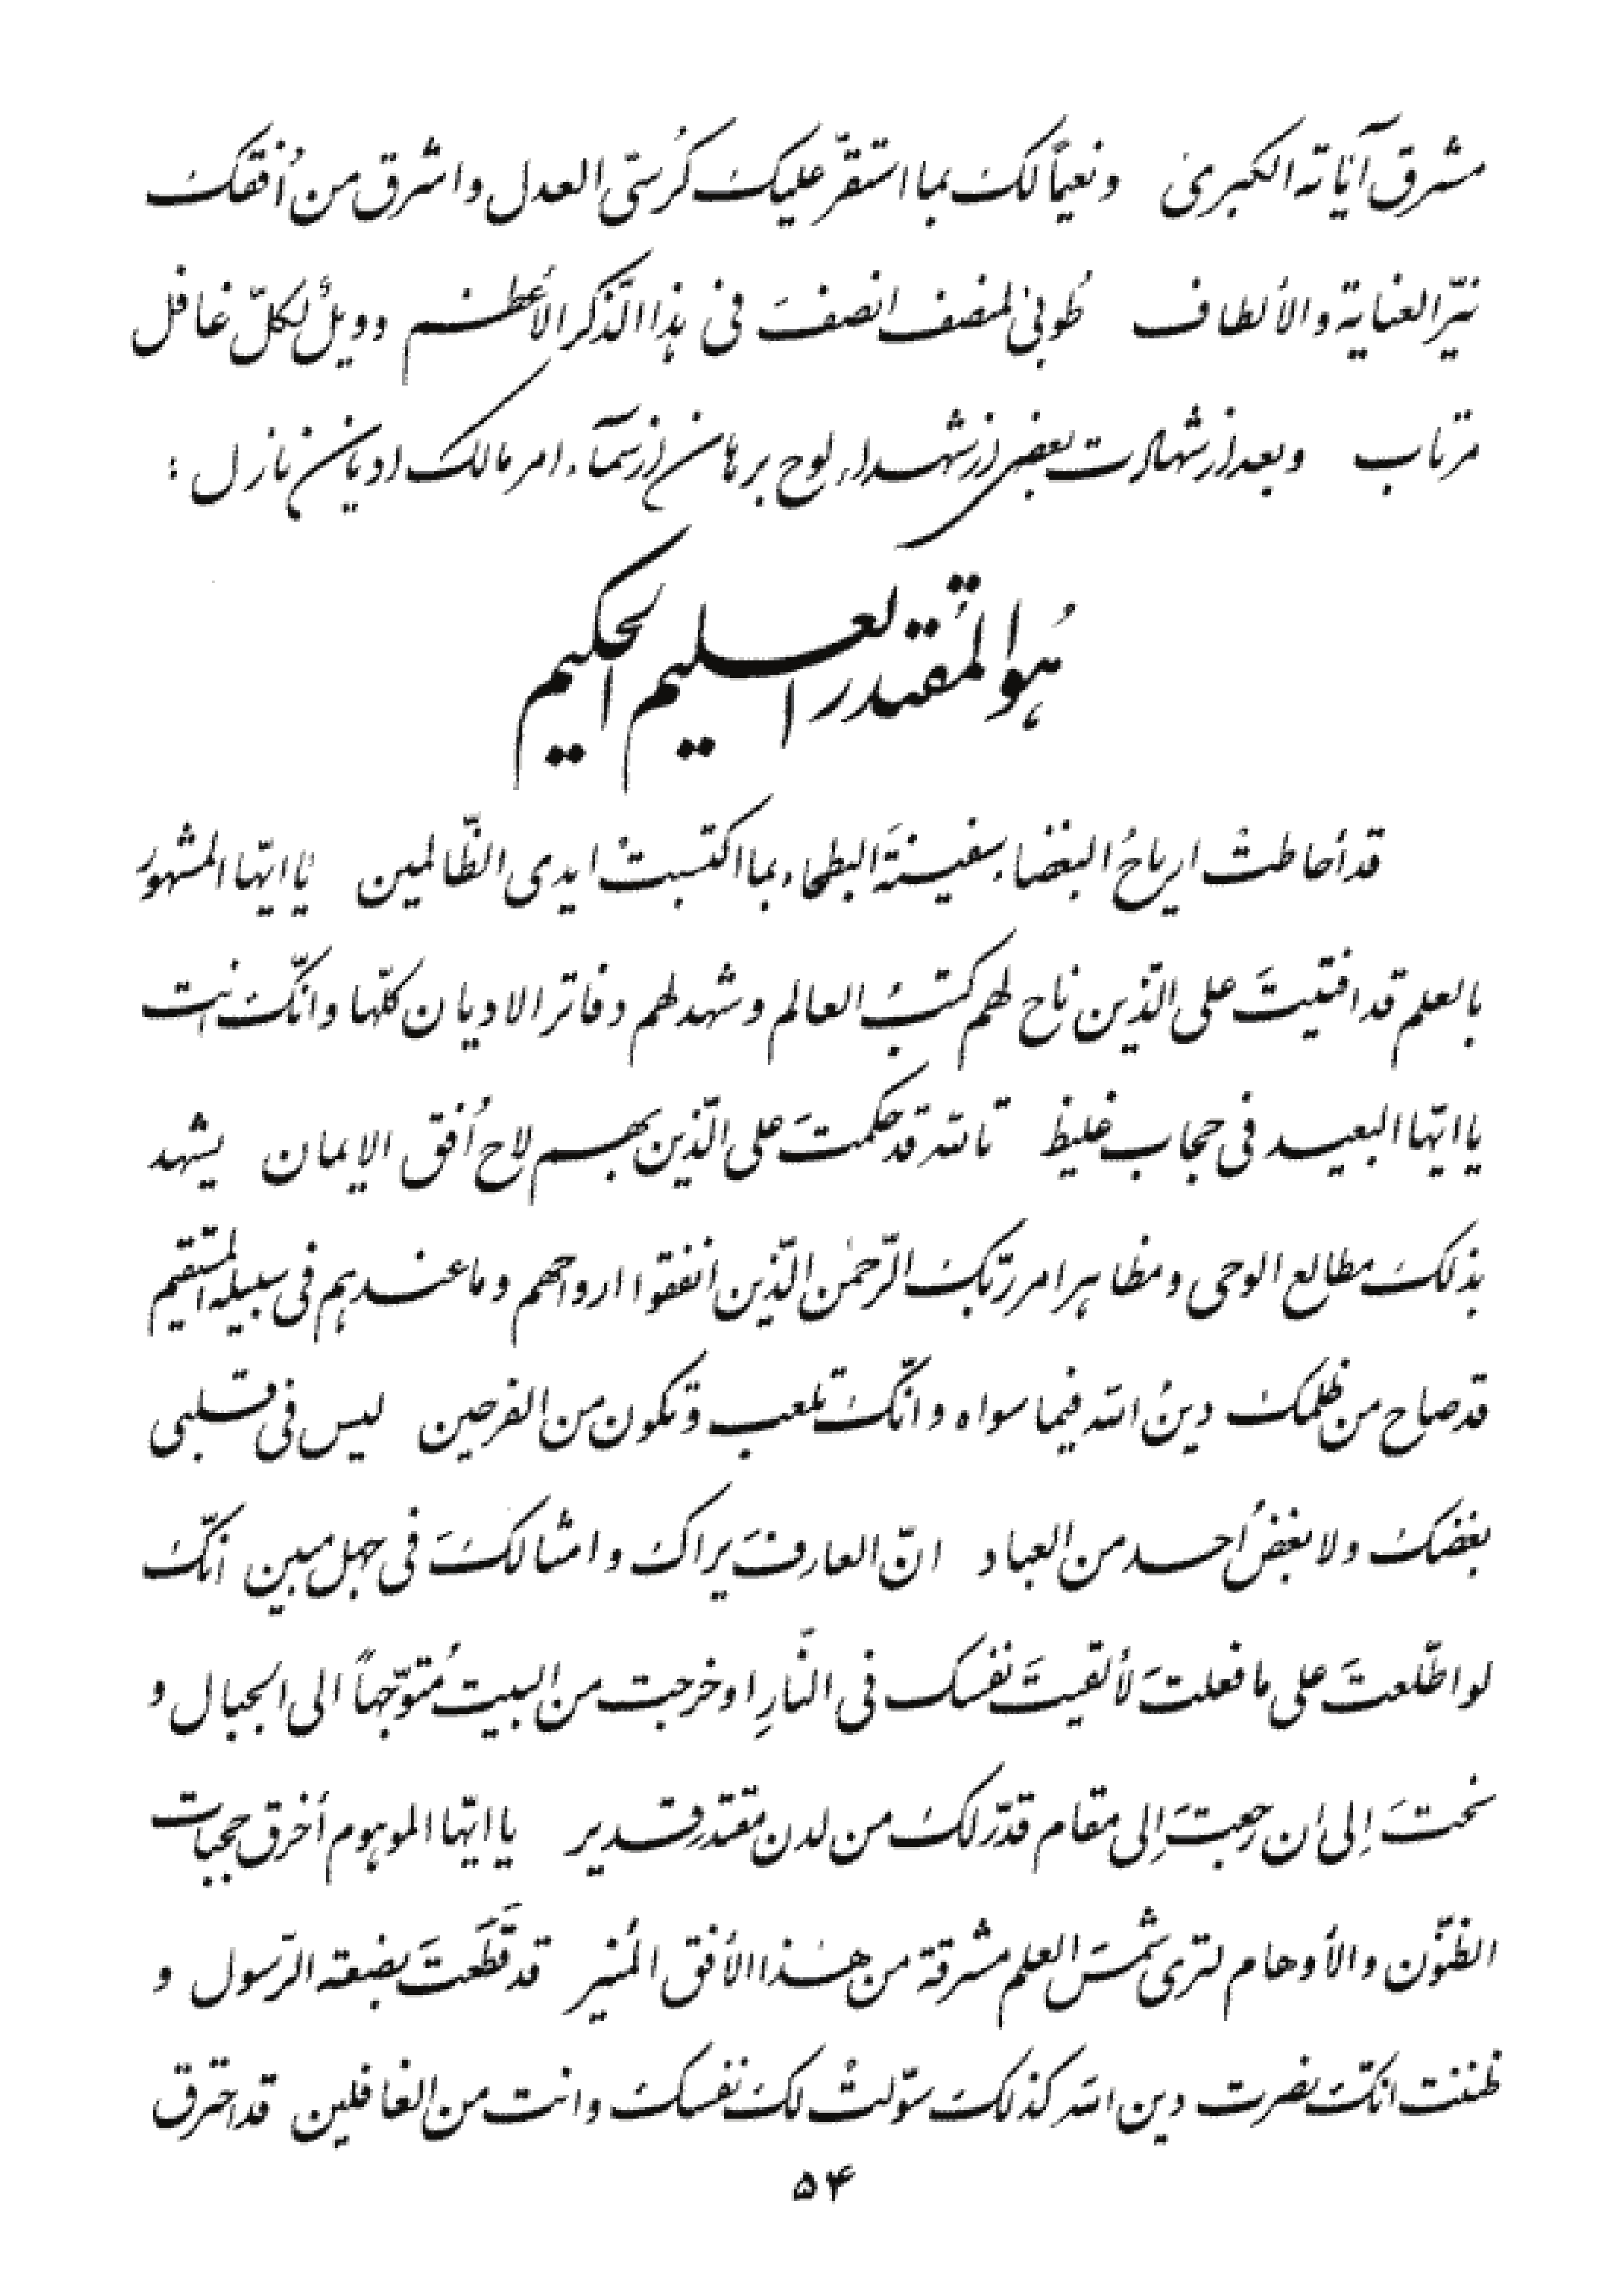 مشرق آیاته الکبریٰ ونعیماً لکَ بما استقرّ علیکَ کُرسیّ العدل و اشرق من اُفقکَ
نیّر العنایة و الألطاف طُوبیٰ لمنصف انصفَ فی هذا الذّکر الأعظم و ویلٌ لکلّ غافل
مرتاب وبعد از شهادت بعضی از شهداء لوح برهان از سمآء امر مالک ادیان نازل :
هُو المُقتدر العلیم الحکیم
قد أحاطتْ اریاحُ البغضاء سفینةَ البطحاء بما اکتسبتْ ایدی الظّالمین یا ایّها المشهورُ
بالعلم قد افتیتَ علی الّذین ناح لهم کتبُ العالم و شهد لهم دفاتر الادیان کلّها و انّکَ انت
یا ایّها البعید فی حجاب غلیظ تاللّه قد حکمتَ علی الّذین بهم لاح اُفق الایمان یشهد
بذلکَ مطالع الوحی و مظاهر امر ربّکَ الرّحمٰن الّذین انفقوا ارواحهم و ما عندهم فی سبیله المستقیم
قد صاح من ظلمکَ دینُ اللّه فیما سواه و انّکَ تلعب و تکون من الفرحین لیس فی قلبی
بغضکَ ولا بغضُ أحد من العباد انّ العارفَ یراکَ و امثالکَ فی جهل مبین انّکَ
لو اطّلعتَ علی ما فعلتَ لألقیتَ نفسک فی النّارِ او خرجت من البیت مُتوجّهاً الی الجبال و
نحتَ إلی ان رجعتَ إلی مقام قدّر لکَ من لدن مقتدر قدیر یا ایّها الموهوم أخرق حجبات
الظّنون و الأوهام لتری شمسَ العلم مشرقة من هٰذا الأفق المُنیر قد قَطَعتَ بضعة الرّسول و
ظننت انّکَ نصرت دین اللّه کذلکَ سوّلتْ لکَ نفسکَ و انت من الغافلین قد احترق
۵۴